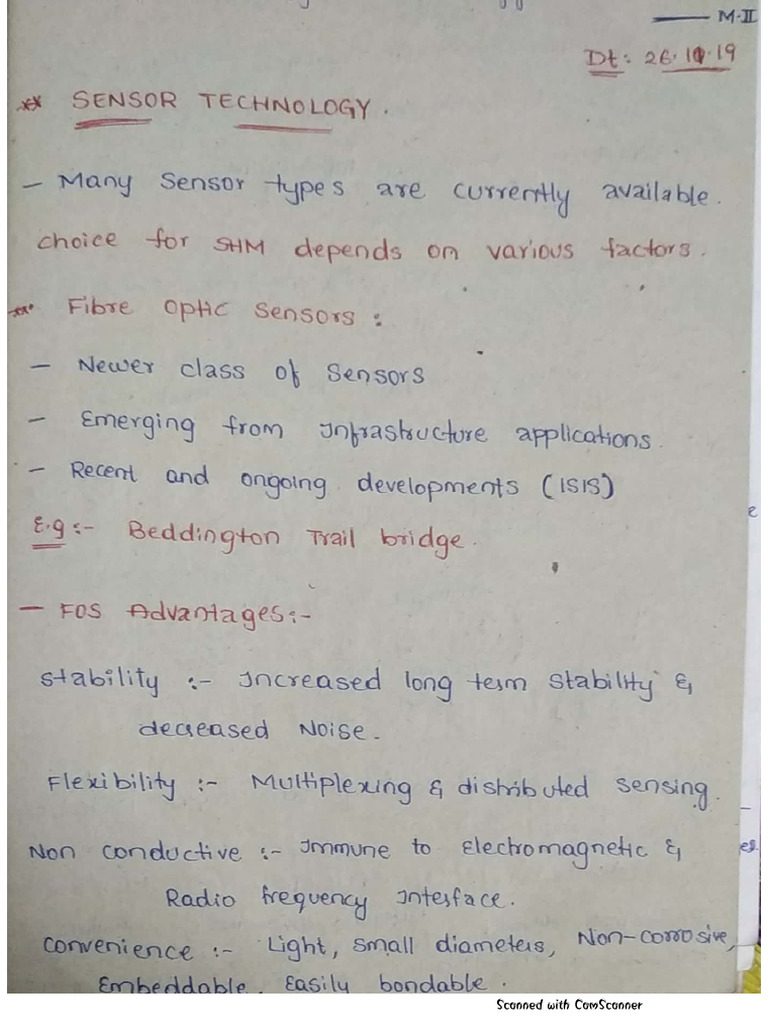 M-II
Dt: 26.10.19
** SENSOR TECHNOLOGY.
- Many Sensor types are currently available.
choice for SHM depends on various factors.
** Fibre Optic Sensors :
- Newer class of Sensors
- Emerging from Infrastructure applications.
- Recent and ongoing developments (ISIS)
E.g :- Beddington Trail bridge.
- FOS Advantages:-
Stability :- Increased long term stability &
decreased Noise.
Flexibility :- Multiplexing & distributed sensing.
Non conductive :- Immune to Electromagnetic &
Radio frequency Interface.
Convenience :- Light, small diameters, Non-corrosive,
Embeddable, Easily bondable.
Scanned with CamScanner